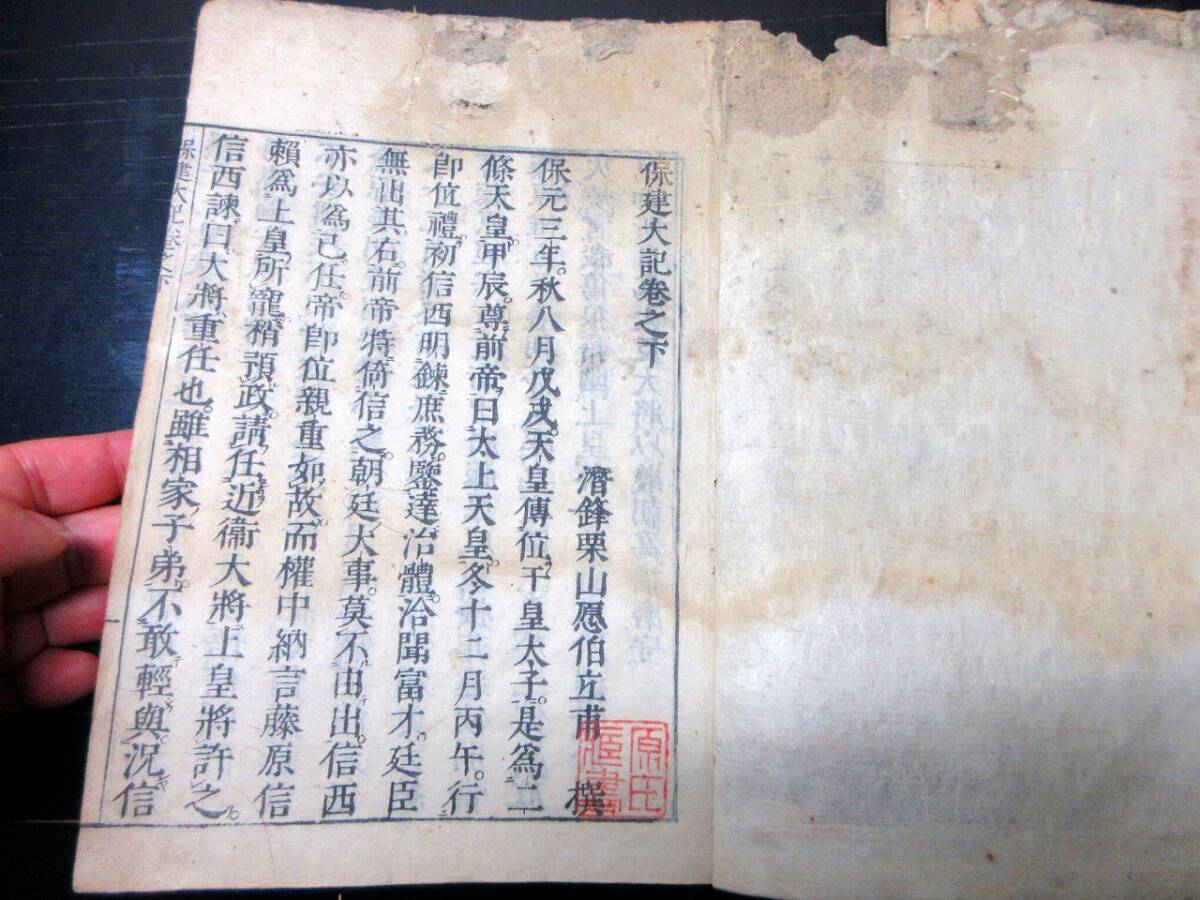 保建大記卷之下
濳鋒栗山愿伯立甫 撰
保元三年。秋八月戊戌。天皇傳位于皇太子。是爲二
條天皇。甲辰。尊前帝曰太上天皇。冬十二月丙午。行
即位禮。初信西明鍊庶務。鑒達治體。洽聞富才。廷臣
無出其右。前帝特倚信之。朝廷大事。莫不由出。信西
亦以爲己任。帝即位親重如故。而權中納言藤原信
賴爲上皇所寵。稍預政。請任近衞大將。上皇將許之。
信西諫曰。大將重任也。雖相家子弟。不敢輕與。況信
保建大記卷之下
原氏
藏書